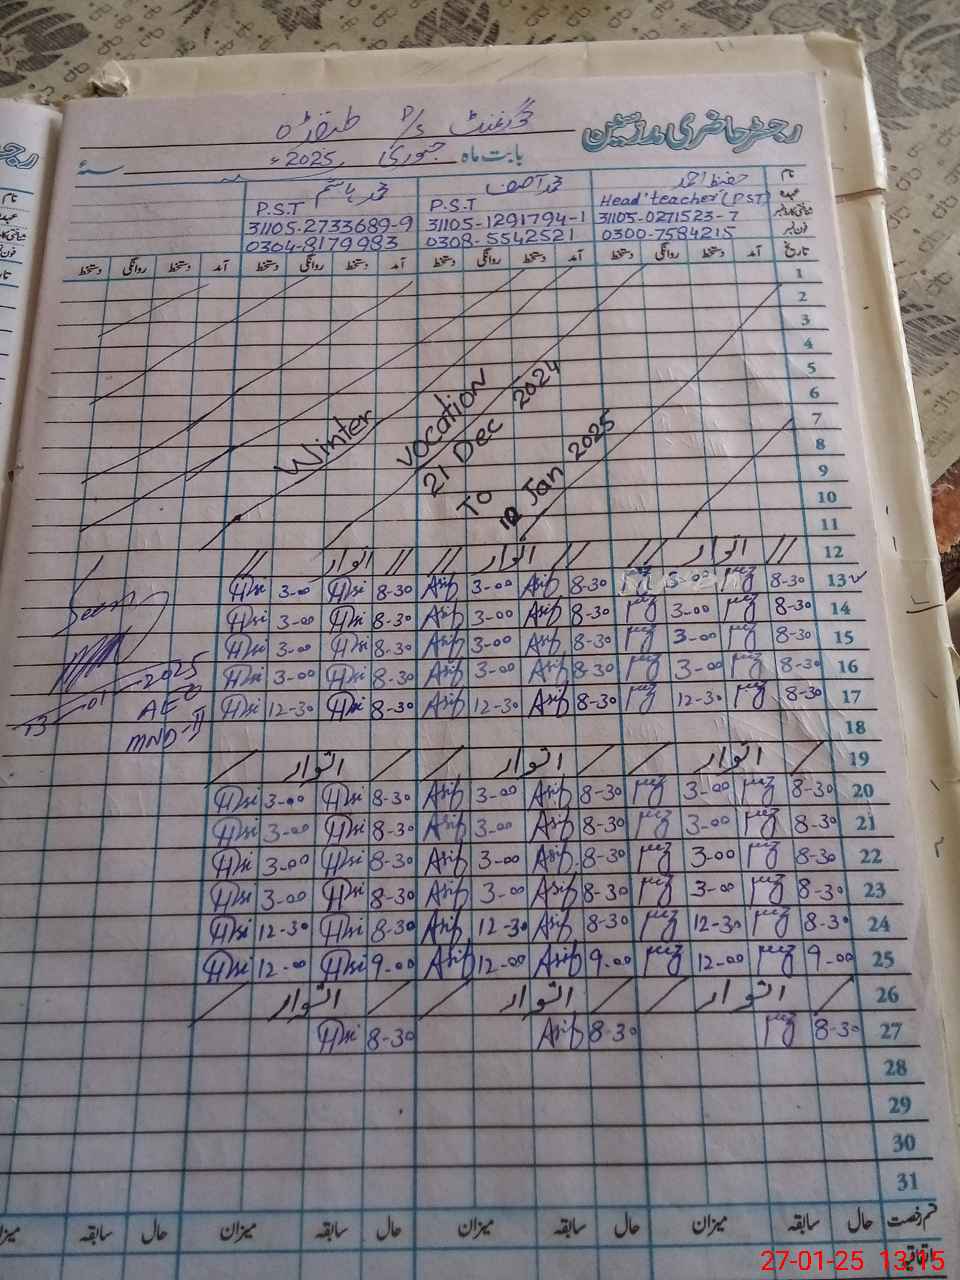 رجسٹر حاضری مدرسین
گورنمنٹ P/S
بابت ماہ جنوری 2025ء سنۂ
نام حفیظ احمد محمد آصف محمد ہاشم
عہدہ Head teacher (PST) P.S.T P.S.T
31105-0271523-7 31105-1291794-1 31105-2733689-9
فون نمبر 0300-7584215 0308-5542521 0304-8179983
تاریخ آمد دستخط روانگی دستخط آمد دستخط روانگی دستخط آمد دستخط روانگی دستخط آمد دستخط روانگی دستخط
1
2
3
4
5
6
7
8
9
10
11
Winter
vocation
21 Dec 2024
To
Jan 2025
12 // اتوار // // اتوار // // اتوار //
13 8-30 3-00 8-30 Asif 3-00 Asif 8-30 3-00
14 8-30 3-00 8-30 Asif 3-00 Asif 8-30 3-00
15 8-30 3-00 8-30 Asif 3-00 Asif 8-30 3-00
16 8-30 3-00 8-30 Asif 3-00 Asif 8-30 3-00
17 8-30 12-30 8-30 Asif 12-30 Asif 8-30 12-30
Seen
13-01-2025
AEO
MND-II
18
19 / اتوار / / اتوار / / اتوار /
20 8-30 3-00 8-30 Asif 3-00 Asif 8-30 3-00
21 8-30 3-00 8-30 Asif 3-00 Asif 8-30 3-00
22 8-30 3-00 8-30 Asif 3-00 Asif 8-30 3-00
23 8-30 3-00 8-30 Asif 3-00 Asif 8-30 3-00
24 8-30 12-30 8-30 Asif 12-30 Asif 8-30 12-30
25 9-00 12-00 9-00 Asif 12-00 Asif 9-00 12-00
26 / اتوار / / اتوار / / اتوار /
27 8-30 8-30 Asif 8-30
28
29
30
31
قسم رخصت حال سابقہ میزان حال سابقہ میزان حال سابقہ میزان حال سابقہ
اتفاقیہ
27-01-25 13:15